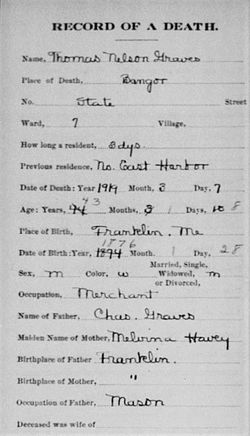 RECORD OF A DEATH.
Name, Thomas Nelson Graves
Place of Death, Bangor
No. State Street
Ward, 7 Village,
How long a resident, 3dys.
Previous residence, No. East Harbor
Date of Death: Year 1919 Month, 3 Day, 7
43
Age: Years, 44 Months, 3 1 Days, 8
Place of Birth, Franklin, Me
1876
Date of Birth: Year 1874 Month, 1 Day, 28
Married, Single,
Sex, m Color, w Widowed, m
or Divorced,
Occupation, Merchant
Name of Father, Chas. Graves
Maiden Name of Mother, Melvina Havey
Birthplace of Father Franklin.
Birthplace of Mother, "
Occupation of Father, Mason
Deceased was wife of